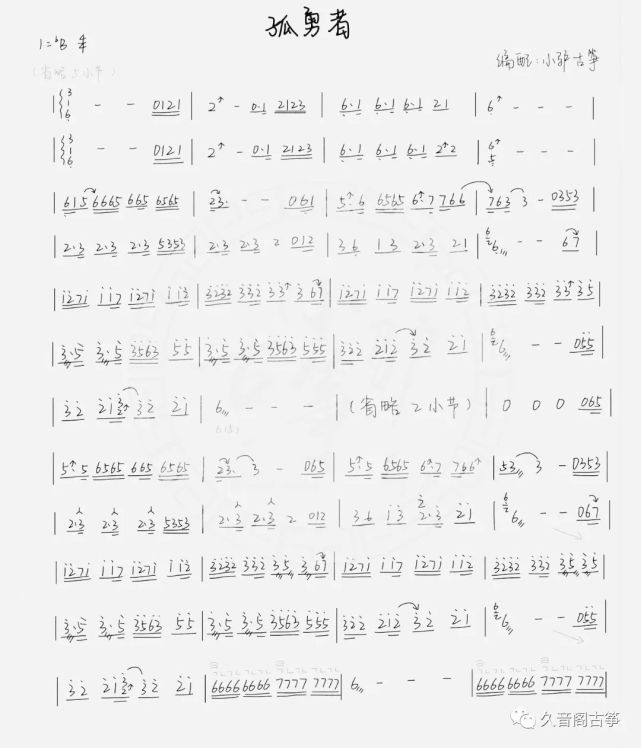 孤勇者
1=♭B
编配:小驴古筝
(省略5小节)
| 3 1 6 - - 0121 | 2↑ - 0·1 2123 | 6·1 6·1 6·1 21 | 6↑ - - - |
| 3 1 6 - - 0121 | 2↑ - 0·1 2123 | 6·1 6·1 6·1 2↑2 | 6↑ 5 - - - |
| 615 6665 665 6565 | 23· - - 061 | 5↑·6 6565 6↑·7 766 | 763 3 - 0353 |
| 2·3 2·3 2·3 5353 | 2·3 2·3 2 012 | 36 13 2·3 21 | 6 - - 67 |
| 1271 117 1271 112 | 3232 332 33↑ 367 | 1271 117 1271 112 | 3232 332 33↑ 35 |
| 3·5 3·5 3563 55 | 3·5 3·5 3563 555 | 322 212 32 21 | 6 - - 055 |
| 32 21 32 21 | 6 - - - | (省略2小节) | 0 0 0 065 |
| 5↑·5 6565 665 6565 | 23· 3 - 065 | 5↑·5 6565 6↑·7 766↑ | 53 3 - 0353 |
| 2·3 2·3 2·3 5353 | 2·3 2·3 2 012 | 36 13 2·3 21 | 6 - - 067 |
| 1271 117 1271 112 | 3232 332 35 367 | 1271 117 1271 112 | 3232 332 35 35 |
| 3·5 3·5 3563 55 | 3·5 3·5 3563 555 | 322 212 32 21 | 6 - - 055 |
| 32 21 32 21 | 6666 6666 7777 7777 | 6 - - - | 6666 6666 7777 7777 |
久音阁古筝